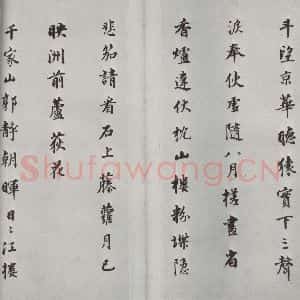 斗望京華聽猿實下三聲
淚奉使虛隨八月槎畫省
香爐違伏枕山樓粉堞隱
悲笳請看石上藤蘿月已
映洲前蘆荻花
千家山郭靜朝暉日々江樓
Shufawang.CN